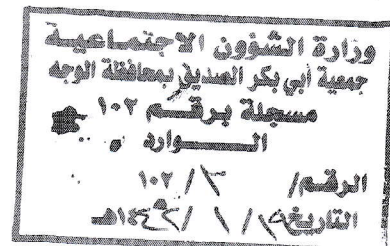 وزارة الشؤون الاجتماعية
جمعية أبي بكر الصديق بمحافظة الوجه
مسجلة برقم ١٠٢
الـــوارد
الرقم/ ١٠٢/٣
التاريخ ١٩/ ١ /١٤٤٢هـ